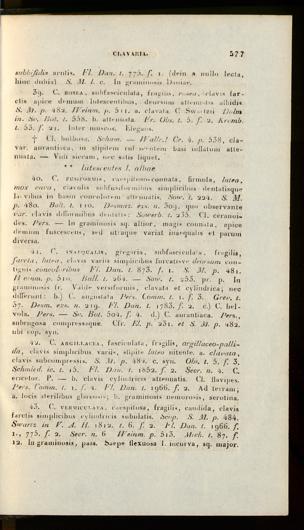 CLAVARIA. 577
subbifidis acutis. Fl. Dan. t. 775. f. 1. (dein a nullo lecta,
hinc dubia). S. M. l. c. In graminosis Daniae.
39. C. ROSEA, subfasciculata, fragilis, rosea, clavis far-
ctis apice demum lutescentibus, deorsum attenuatis albidis
S. M. p. 482. Weinm. p. 511. a. clavata C. Swartzii Dalm
in. Sv. Bot. t. 558. b. attenuata. Fr. Obs. t. 5. f. 2. Kromb.
t. 53. f. 21. Inter muscos. Elegans.
† Cl. bulbosa. Schum. — Wallr. Cr. 4. p. 538, cla-
var. aurantiaca, in stipitem ad basi inflatum atte-
nuata. — Vidi siccam, nec satis liquet.
** lutescentes l. albae
40. C. FUSIFORMIS, caespitoso-connata, firmula, lutea,
mox cava, clavulis subfusiformibus simplicibus dentatisque
lævibus in basin concolorem attenuatis. Sow. t. 224. S. M.
p. 480. Bull. t. 110. Desmaz. exs. n. 303. quo observante
var. clavis difformibus dentatis: Sowerb. t. 235. Cl. ceranoi-
des. Pers. — In graminosis sq. altior, magis connata, apice
demum fuscescens, sed utraque variat inaequalis et parum
diversa.
41. C. INAEQUALIS, gregaria, subfasciculata, fragilis,
farcta, lutea, clavis variis simplicibus furcatisve deorsum con-
tiguis concoloribus Fl. Dan. t. 873. f. 1. S. M. p. 481.
Weinm. p. 510. Bull. t. 264. — Sow. t. 253. pr. p. In
graminosis fr. Valde versiformis, clavata et cylindrica; nec
differunt: b.) C. angustata Pers. Comm. t. 1. f. 3. Grev. t.
37. Desm. exs. n. 219. Fl. Dan. t. 1783. f. 2. c.) C. hel-
vola. Pers. — Sv. Bot. 504. f. 4. d.) C. aurantiaca. Pers.,
subrugosa compressaque. Cfr. El. p. 231. et S. M. p. 482.
ubi cop. syn.
42. C. ARGILLACEA, fasciculata, fragilis, argillaceo-palli-
da, clavis simplicibus variis, stipite luteo nitente. a. clavata,
clavis subcompressis. S. M. p. 482. c. syn. Obs. t. 5. f. 3.
Schmied. ic. t. 15. Fl. Dan. t. 1852. f. 2. Secr. n. 4. C.
ericetor. P. — b. clavis cylindricis attenuatis. Cl. flavipes.
Pers. Comm. t. 1. f. 4. Fl. Dan. t. 1966. f. 2. Ad terram;
a. locis sterilibus glareosis; b. graminosis nemorosis, serotina.
43. C. VERMICULATA, caespitosa, fragilis, candida, clavis
farctis simplicibus cylindricis subulatis. Scop. S. M. p. 484.
Swartz in V. A. H. 1812. t. 6. f. 2. Fl. Dan. t. 1966. f.
1., 775. f. 2. Secr. n. 6 Weinm. p. 513. Mich. t. 87. f.
12. In graminosis, pass. Saepe flexuosa l. incurva, sq. major.